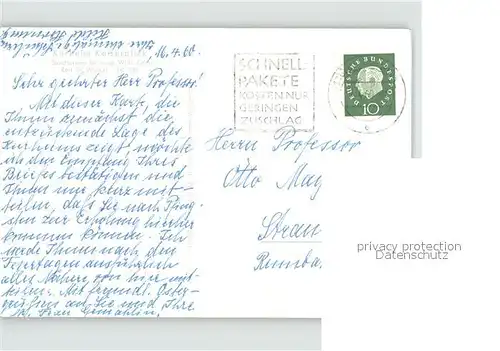 16.4.60.
Sehr geehrter Herr Professor!
Mit dieser Karte, die
Ihnen zunächst die
entzückende Lage des
Kurhauses zeigt, möchte
ich den Empfang Ihres
Briefes bestätigen und
Ihnen nur kurz mit-
teilen, daß Sie nach Pfing-
sten zur Erholung hierher
kommen können. Ich
werde Ihnen nach den
Feiertagen ausführlich
alles Nähere von hier mit-
teilen. Mit freundl. Oster-
grüßen an Sie und Ihre
Frau Gemahlin,
SCHNELL-
PAKETE
KOSTEN NUR
GERINGEN
ZUSCHLAG
DEUTSCHE BUNDESPOST
10
Herrn Professor
Otto May
privacy protection
Datenschutz